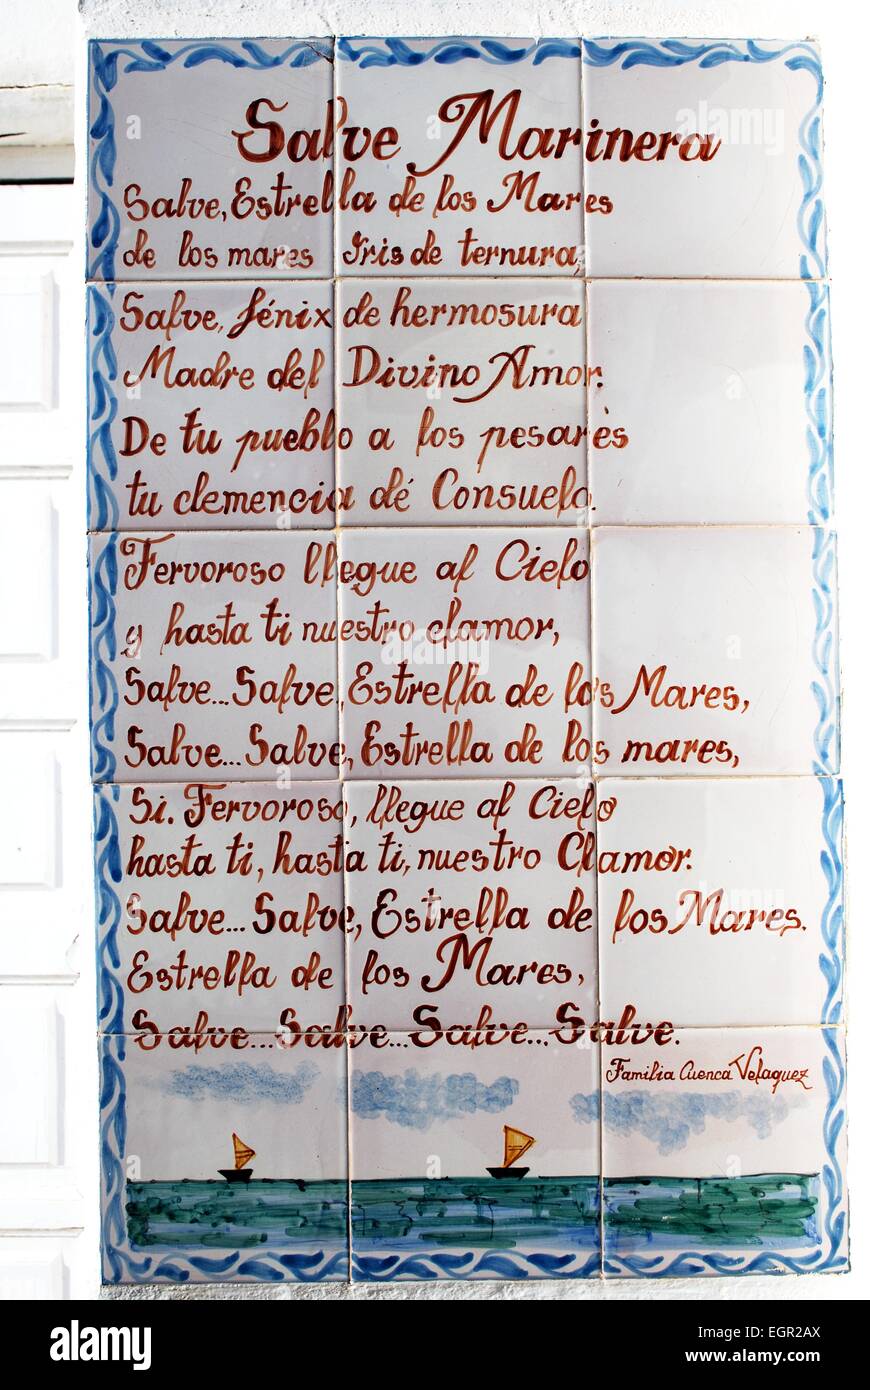 Salve Marinera
Salve, Estrella de los Mares
de los mares Iris de ternura,
Salve, fénix de hermosura
Madre del Divino Amor.
De tu pueblo a los pesarès
tu clemencia dé Consuelo.
Fervoroso llegue al Cielo
y hasta ti nuestro clamor,
Salve...Salve, Estrella de los Mares,
Salve...Salve, Estrella de los mares,
Si. Fervoroso, llegue al Cielo
hasta ti, hasta ti, nuestro Clamor.
Salve...Salve, Estrella de los Mares.
Estrella de los Mares,
Salve...Salve...Salve...Salve.
Familia Cuenca Velaquez
alamy
Image ID: EGR2AX
www.alamy.com